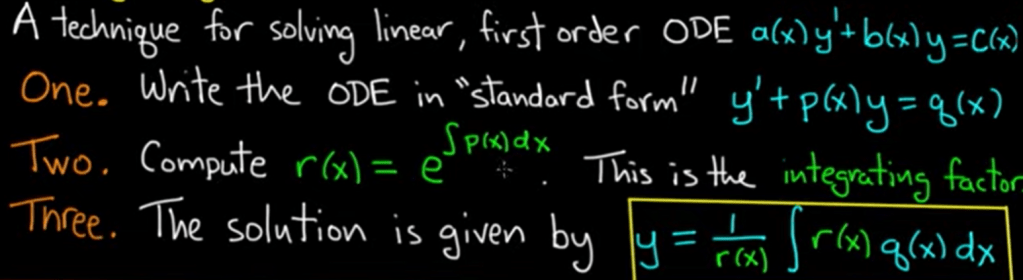 A technique for solving linear, first order ODE a(x)y'+b(x)y=c(x)
One. Write the ODE in "standard form" y'+p(x)y=q(x)
Two. Compute r(x)=e^∫p(x)dx. This is the integrating factor
Three. The solution is given by y = 1/r(x) ∫r(x)q(x)dx